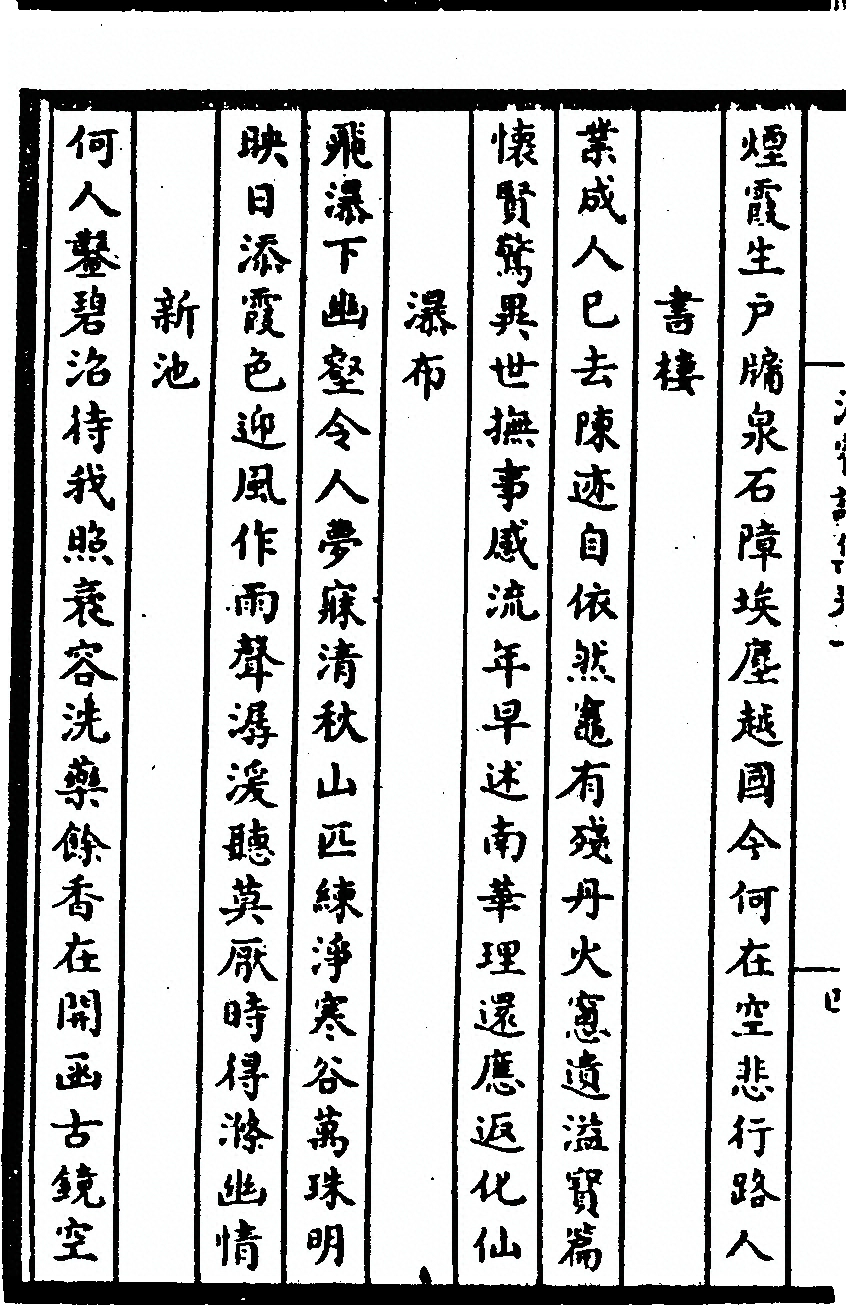 煙霞生戸牖泉石障埃塵越國今何在空悲行路人
書樓
業成人已去陳迹自依然竈有殘丹火窓遺溢寳篇
懷賢驚異世撫事感流年早述南華理還應返化仙
瀑布
飛瀑下幽壑令人夢寐清秋山匹練淨寒谷萬珠明
映日添霞色迎風作雨聲潺湲聽莫厭時得滌幽情
新池
何人鑿碧沼待我照衰容洗藥餘香在開函古鏡空